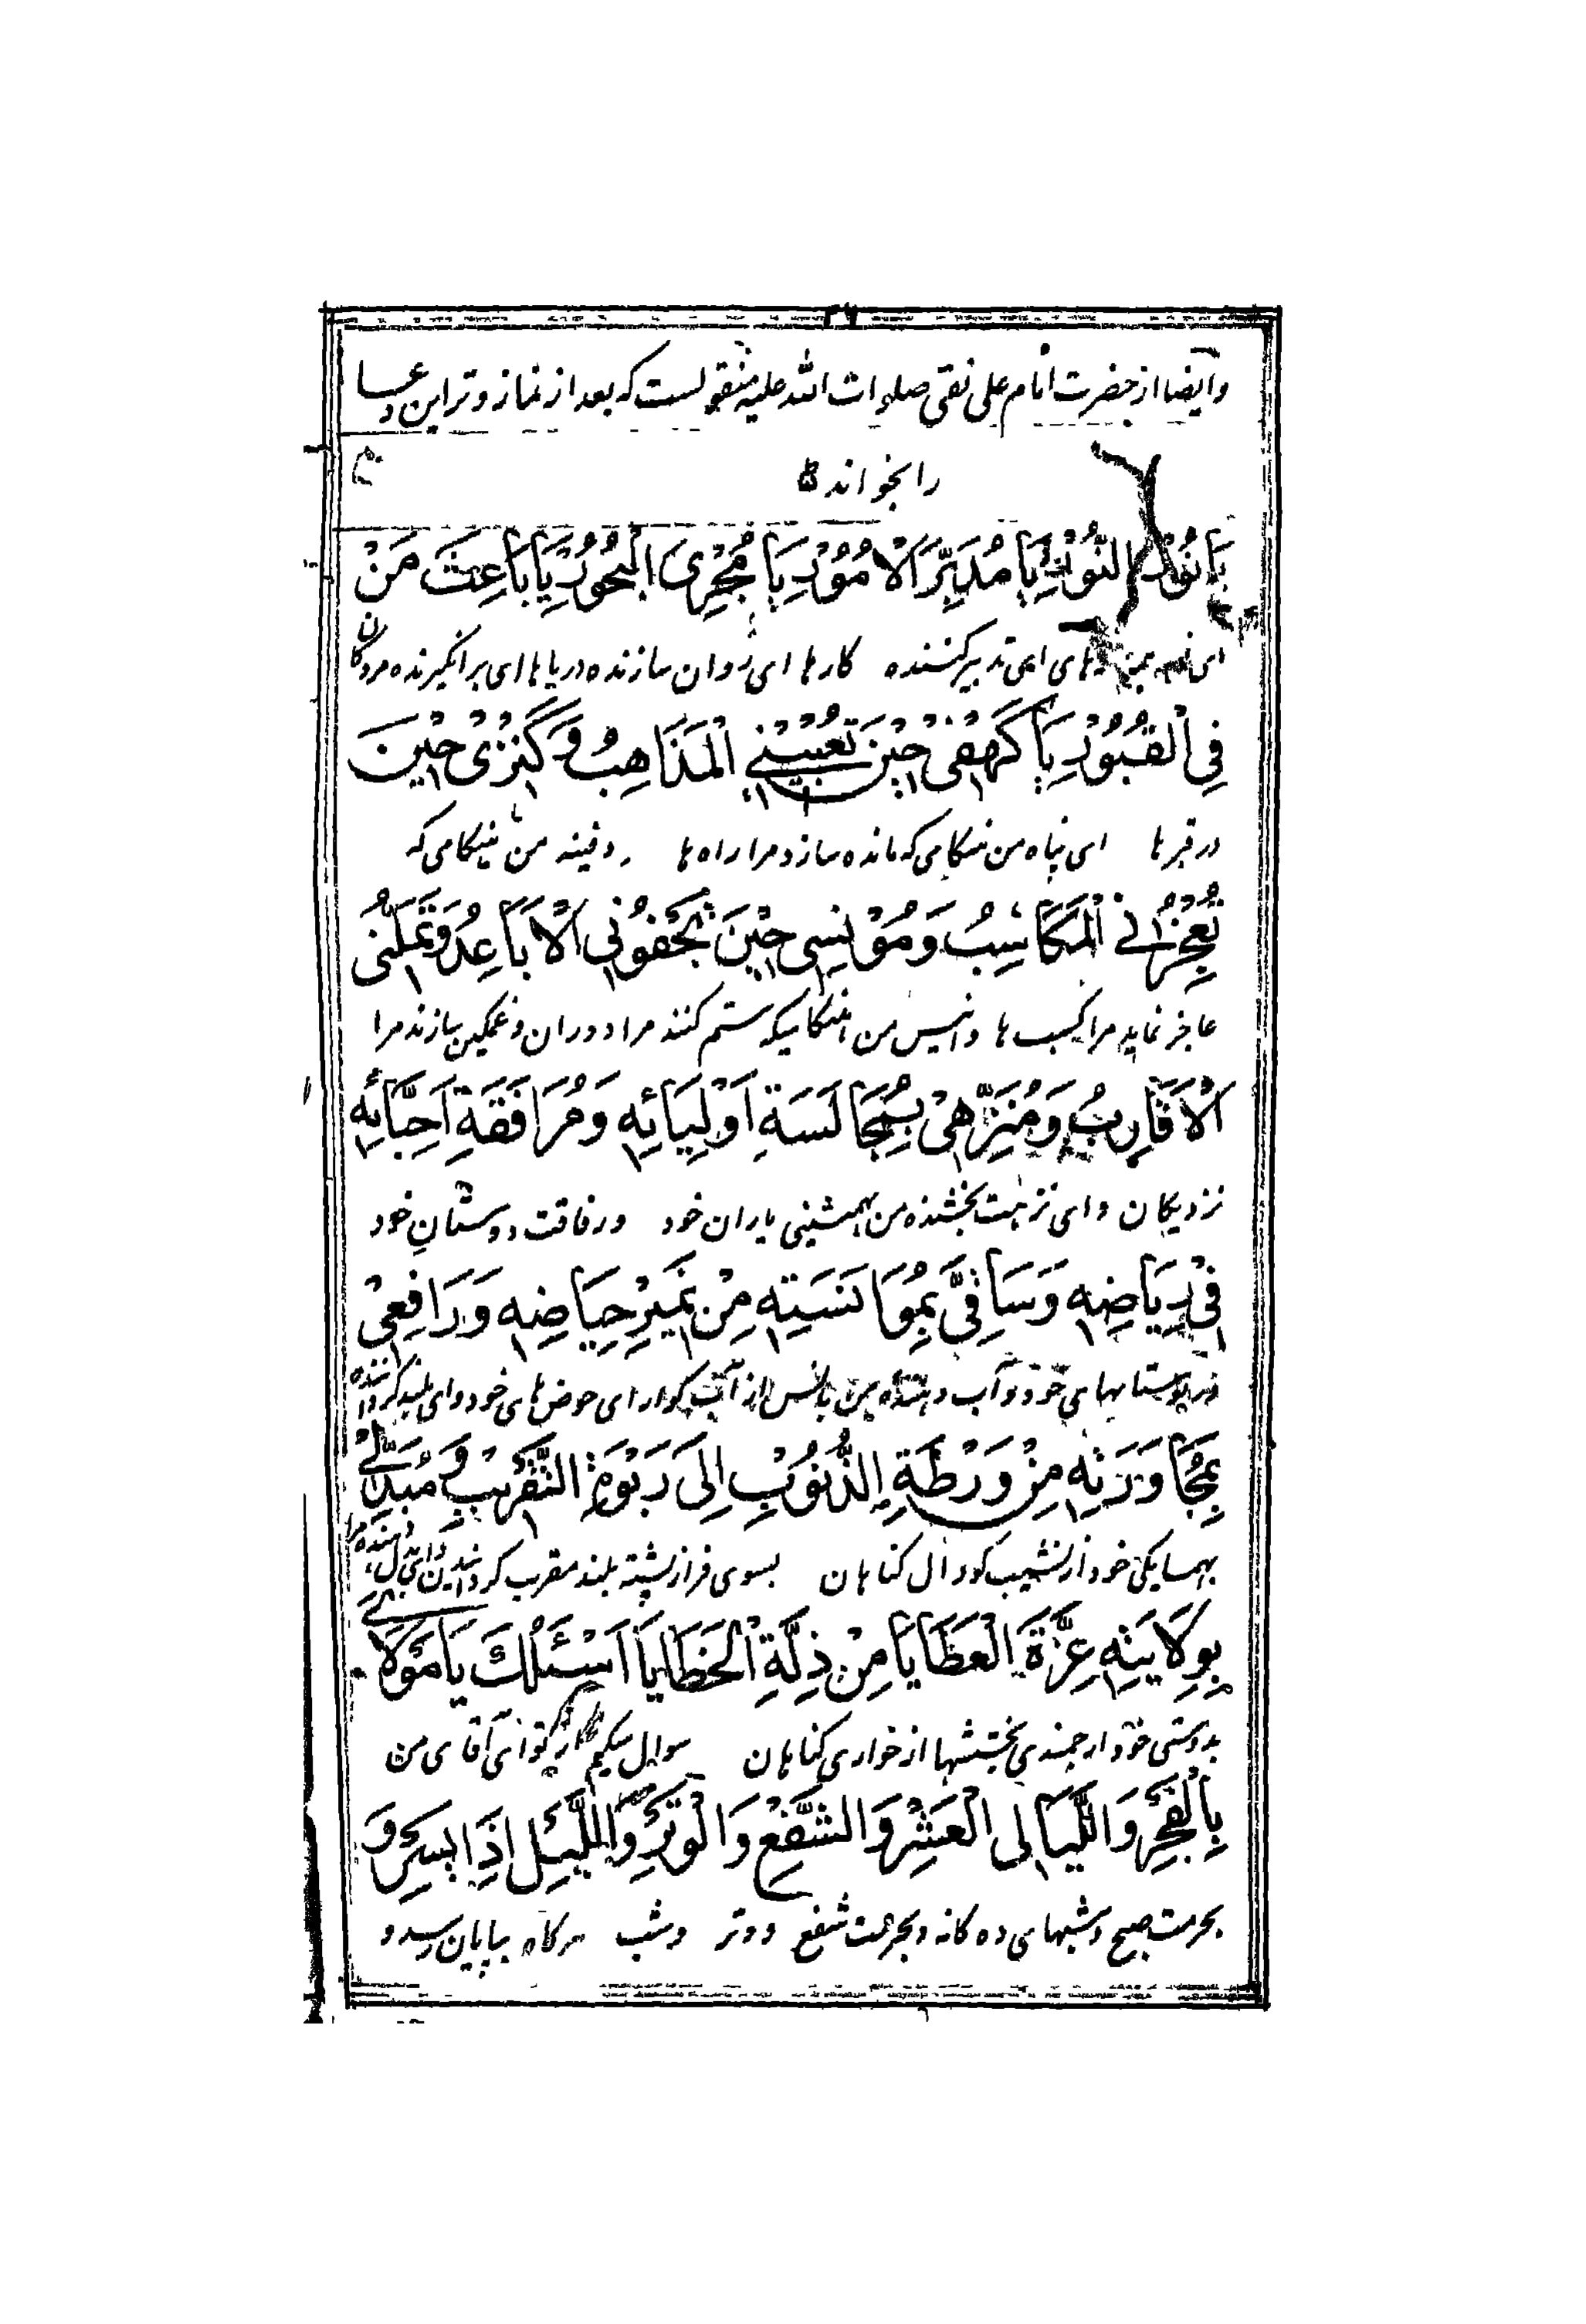 ۲۶
وایضا از حضرت امام علی نقی صلوات الله علیه منقولست که بعد از نماز وتر این دعا
را بخواند
يَا نُورَ النُّورِ يَا مُدَبِّرَ الْأُمُورِ يَا مُجْرِيَ الْبُحُورِ يَا بَاعِثَ مَنْ
ای تدبیر کننده کارها ای روان سازنده دریاها ای برانگیزنده مردگان
فِي الْقُبُورِ يَا كَهْفِي حِينَ تُعْيِينِي الْمَذَاهِبُ وَ كَنْزِي حِينَ
در قبرها ای پناه من هنکامی که مانده سازد مرا راه ها و دفینه من هنکامی که
تُعْجِزُنِي الْمَكَاسِبُ وَ مُونِسِي حِينَ تَجْفُونِي الْأَبَاعِدُ وَ تَمَلُّنِي
عاجز نماید مرا کسب ها و انیس من هنکامیکه ستم کنند مرا دوران و غمکین سازند مرا
الْأَقَارِبُ وَ مُنَزِّهِي بِمُجَالَسَةِ أَوْلِيَائِهِ وَ مُرَافَقَةِ أَحِبَّائِهِ
نزدیکان و ای نزهت بخشنده من بهمنشینی یاران خود و رفاقت دوستان خود
فِي رِيَاضِهِ وَ سَاقِيَّ بِمُؤَانَسَتِهِ مِنْ نَمِيرِ حِيَاضِهِ وَ رَافِعِي
در بوستانهای خود و آب دهنده من بانس از آب کوارای حوض های خود و ای بلند کرداننده
بِمُجَاوَرَتِهِ مِنْ وَرْطَةِ الذُّنُوبِ إِلَى رَبْوَةِ التَّقْرِيبِ وَ مُبَدِّلِي
بهمسایکی خود از نشیب کودال کناهان بسوی فراز پشته بلند مقرب کردانیدن و ای بدل دهنده مرا
بِوِلَايَتِهِ عِزَّةَ الْعَطَايَا مِنْ ذِلَّةِ الْخَطَايَا أَسْئَلُكَ يَا مَوْلَايَ
بدوستی خود ارجمندی بخششها از خواری کناهان سوال میکنم تو ای آقای من
بِالْفَجْرِ وَ اللَّيَالِي الْعَشْرِ وَ الشَّفْعِ وَ الْوَتْرِ وَ اللَّيْلِ إِذَا يَسْرِ وَ
بحرمت صبح و شبهای ده کانه و بحرمت شفع و وتر و شب هرکاه بپایان رسد و